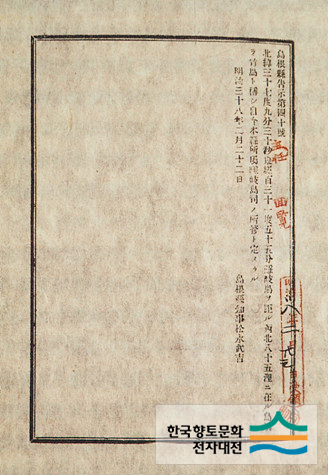 島根縣告示第四十號
北緯三十七度九分三十秒東經百三十一度五十五分隱岐島ヲ距ル西北八十五浬ニ在ル島
ヲ竹島ト稱シ自今本縣所屬隱岐島司ノ所管ト定メラル
明治三十八年二月二十二日
島根縣知事松永武吉
主任
回覧
한국향토문화
전자대전